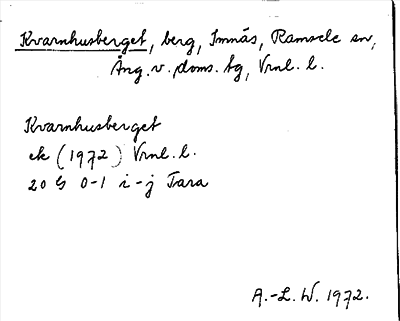 Kvarnhusberget, berg, Imnäs, Ramsele sn,
Ång. v. doms. tg, Vrnl. l.
Kvarnhusberget
ek (1972) Vrnl. l.
20 G 0-1 i-j Tara
A.-L. W. 1972.